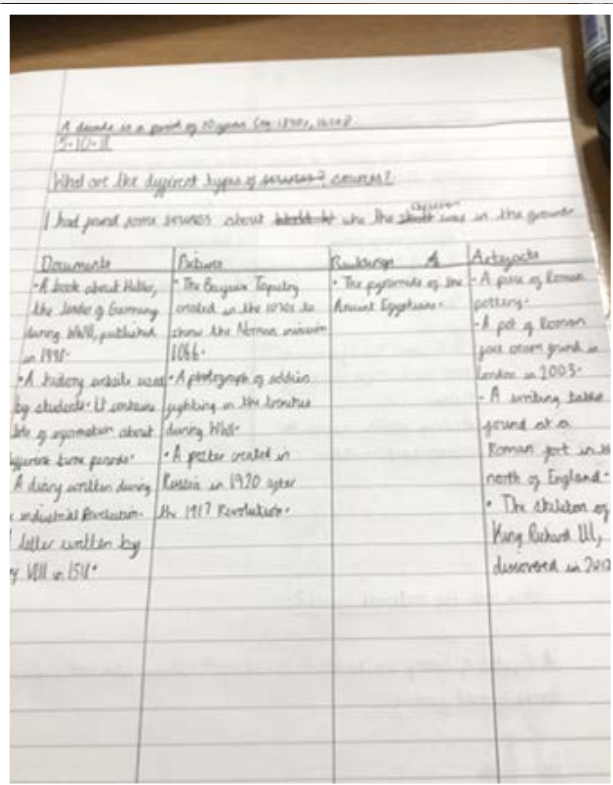 A decade is a period of 10 years (eg 1890s, 1620s)
5-10-18
What are the different types of sources? sources?
I had found some sources about who the was in the ground
Documents
- A book about Hitler,
the leader of Germany
during WWII, published
in 1998.
- A history website used
by students. It contains
lots of information about
different time periods.
A diary written during
industrial Revolution.
letter written by
VIII in 1511.
Pictures
- The Bayeux Tapestry
created in the 1070s to
show the Norman invasion
1066.
- A photograph of soldiers
fighting in the trenches
during WWI.
- A poster created in
Russia in 1920 after
the 1917 Revolution.
Buildings
- The pyramids of the
Ancient Egyptians.
Artefacts
- A piece of Roman
pottery.
- A pot of Roman
face cream found in
London in 2003.
- A writing tablet
found at a
Roman fort in
north of England.
- The skeleton of
King Richard III,
discovered in 2012